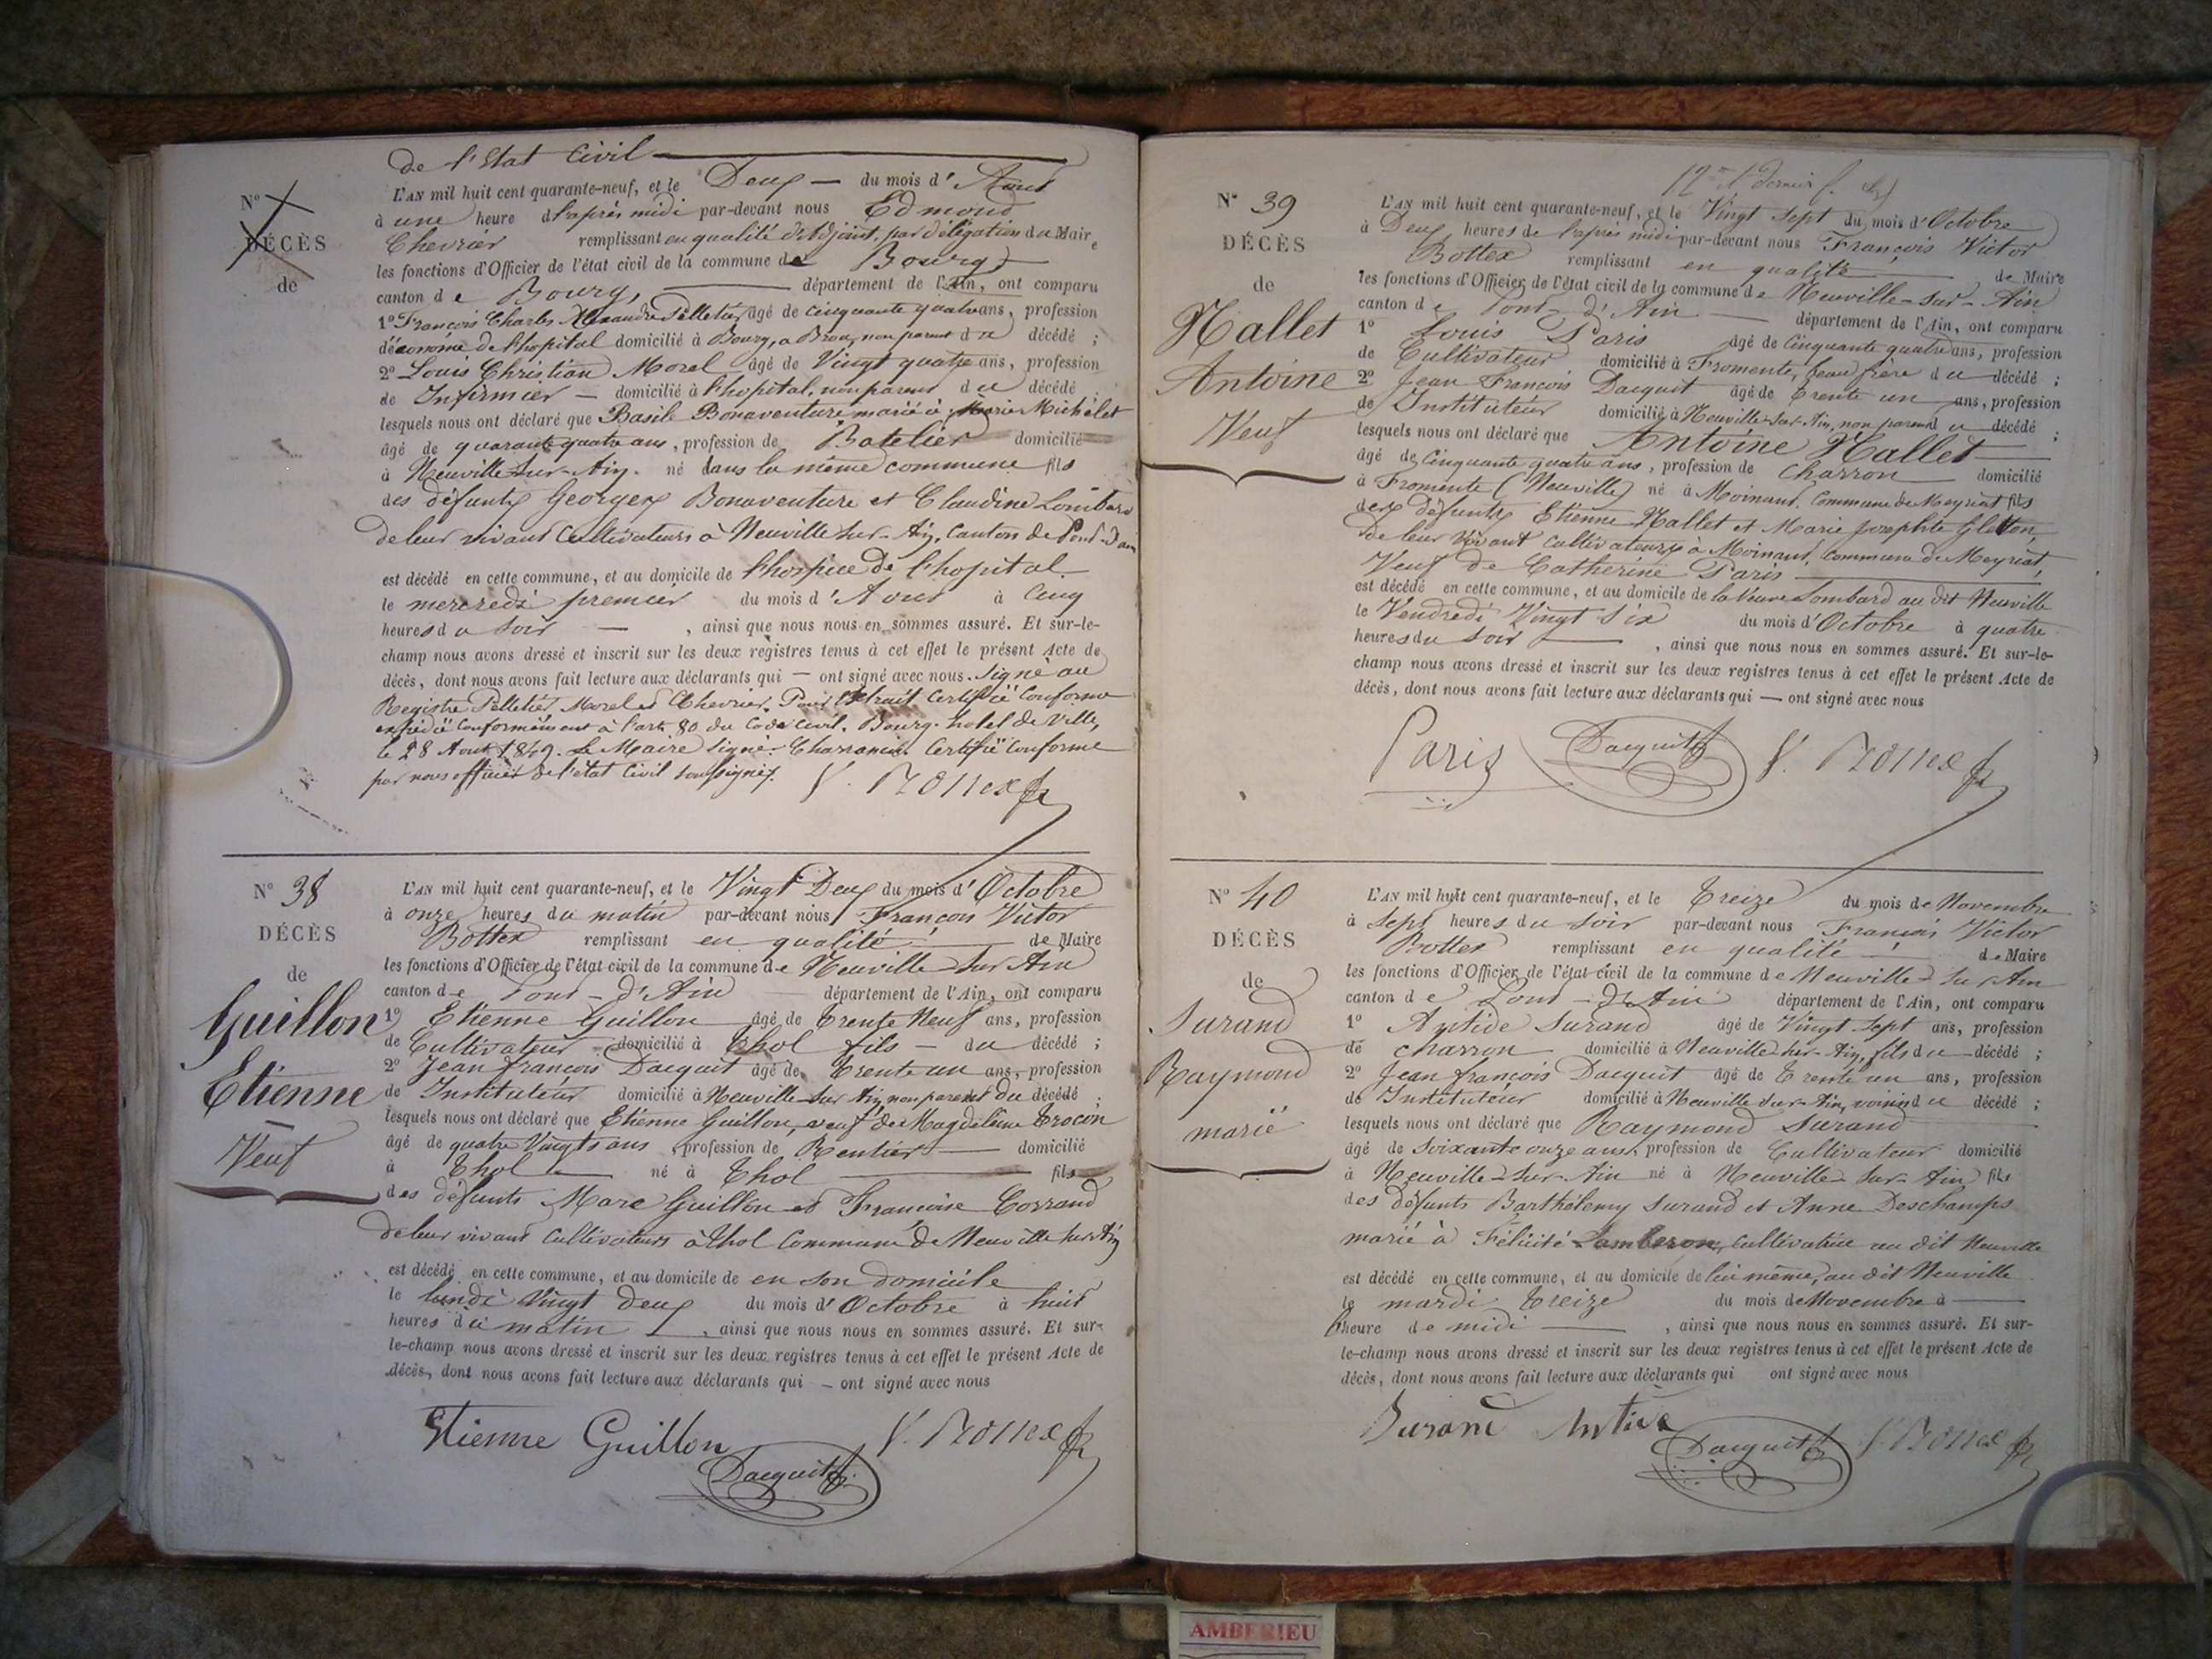 de l'Etat Civil
N°
DÉCÈS
de
L'AN mil huit cent quarante-neuf, et le Deux du mois d'Aout
à une heure d l'après midi par-devant nous Edmond
Chevrier remplissant en qualité d'Adjoint, par délégation du Maire
les fonctions d'Officier de l'état civil de la commune de Bourg
canton de Bourg, département de l'Ain, ont comparu
1° François Charles Alexandre Pelletier âgé de cinquante quatre ans, profession
d'économe de l'hopital domicilié à Bourg, a Brou, non parent du décédé ;
2° Louis Christian Morel âgé de Vingt quatre ans, profession
de Infirmier — domicilié à l'hopital, non parent du décédé ;
lesquels nous ont déclaré que Basile Bonaventure marié à Marie Michelet
âgé de quarante quatre ans, profession de Batelier domicilié
à Neuville-sur-Ain. né dans la même commune fils
des défunts Georges Bonaventure et Claudine Lombard
de leur vivant Cultivateurs à Neuville sur-Ain, Canton de Pont-d'ain
est décédé en cette commune, et au domicile de l'hospice de l'hopital
le mercredi premier du mois d'Aout à Cinq
heures du Soir — , ainsi que nous nous en sommes assuré. Et sur-le-
champ nous avons dressé et inscrit sur les deux registres tenus à cet effet le présent Acte de
décès, dont nous avons fait lecture aux déclarants qui — ont signé avec nous. Signé au
Registre Pelletier Morel et Chevrier. Pour Extrait Certifié Conforme
expédié Conformément à l'art. 80 du Code Civil. Bourg. hotel de Ville,
le 28 Aout 1849. Le Maire signé. Certifié Conforme
par nous officier de l'état Civil soussigné.
V. Bottex
N° 38
DÉCÈS
de
Guillon
Etienne
Veuf
L'AN mil huit cent quarante-neuf, et le Vingt Deux du mois d'Octobre
à onze heures du matin par-devant nous François Victor
Bottex remplissant en qualité de Maire
les fonctions d'Officier de l'état civil de la commune de Neuville sur Ain
canton de Pont-d'Ain département de l'Ain, ont comparu
1° Etienne Guillon âgé de trente Neuf ans, profession
de Cultivateur domicilié à Thol fils — du décédé ;
2° Jean françois Dacquit âgé de trente un ans, profession
de Instituteur domicilié à Neuville-sur Ain, non parent du décédé ;
lesquels nous ont déclaré que Etienne Guillon, veuf de Magdeleine Trocon
âgé de quatre Vingts ans, profession de Rentier — domicilié
à Thol né à Thol fils
des défunts Marc Guillon et Françoise Corrand
de leur vivant Cultivateurs à Thol Commune de Neuville sur Ain
est décédé en cette commune, et au domicile de en son domicile
le lundi vingt deux du mois d'Octobre à huit
heures du matin , ainsi que nous nous en sommes assuré. Et sur-
le-champ nous avons dressé et inscrit sur les deux registres tenus à cet effet le présent Acte de
décès, dont nous avons fait lecture aux déclarants qui — ont signé avec nous
Etienne Guillon V. Bottex
Dacquit
12me et dernier f.
N° 39
DÉCÈS
de
Hallet
Antoine
Veuf
L'AN mil huit cent quarante-neuf, et le Vingt Sept du mois d'Octobre
à Deux heures de l'après midi par-devant nous François Victor
Bottex remplissant en qualité de Maire
les fonctions d'Officier de l'état civil de la commune de Neuville-sur-Ain
canton de Pont-d'Ain département de l'Ain, ont comparu
1° Louis Paris âgé de Cinquante quatre ans, profession
de Cultivateur domicilié à Fromente, beau frère du décédé ;
2° Jean François Dacquit âgé de trente un ans, profession
de Instituteur domicilié à Neuville-sur-Ain, non parent du décédé ;
lesquels nous ont déclaré que Antoine Hallet
âgé de Cinquante quatre ans, profession de Charron domicilié
à Fromente (Neuville) né à Moinant, Commune de Meyriat fils
des défunts Etienne Hallet et Marie Josephte
de leur vivant Cultivateurs à Moinant, Commune de Meyriat,
Veuf de Catherine Paris
est décédé en cette commune, et au domicile de la Veuve Lombard au dit Neuville
le Vendredi Vingt Six du mois d'Octobre à quatre
heures du Soir , ainsi que nous nous en sommes assuré. Et sur-le-
champ nous avons dressé et inscrit sur les deux registres tenus à cet effet le présent Acte de
décès, dont nous avons fait lecture aux déclarants qui — ont signé avec nous
Paris Dacquit V. Bottex
N° 40
DÉCÈS
de
Surand
Raymond
marié
L'AN mil huit cent quarante-neuf, et le Treize du mois de Novembre
à Sept heures du Soir par-devant nous François Victor
Bottex remplissant en qualité de Maire
les fonctions d'Officier de l'état civil de la commune de Neuville-sur Ain
canton de Pont-d'Ain département de l'Ain, ont comparu
1° Antide Surand âgé de Vingt Sept ans, profession
de charron domicilié à Neuville-sur-Ain, fils du décédé ;
2° Jean françois Dacquit âgé de trente un ans, profession
de Instituteur domicilié à Neuville-sur-Ain, voisin du décédé ;
lesquels nous ont déclaré que Raymond Surand
âgé de Soixante onze ans, profession de Cultivateur domicilié
à Neuville-sur-Ain né à Neuville-sur-Ain fils
des défunts Barthélemy Surand et Anne Deschamps
marié à Félicité Lamberon, cultivatrice au dit Neuville
est décédé en cette commune, et au domicile de lui même, au dit Neuville
le mardi Treize du mois de Novembre à
l'heure de midi , ainsi que nous nous en sommes assuré. Et sur-
le-champ nous avons dressé et inscrit sur les deux registres tenus à cet effet le présent Acte de
décès, dont nous avons fait lecture aux déclarants qui ont signé avec nous
Surand Antide
Dacquit V. Bottex
AMBERIEU